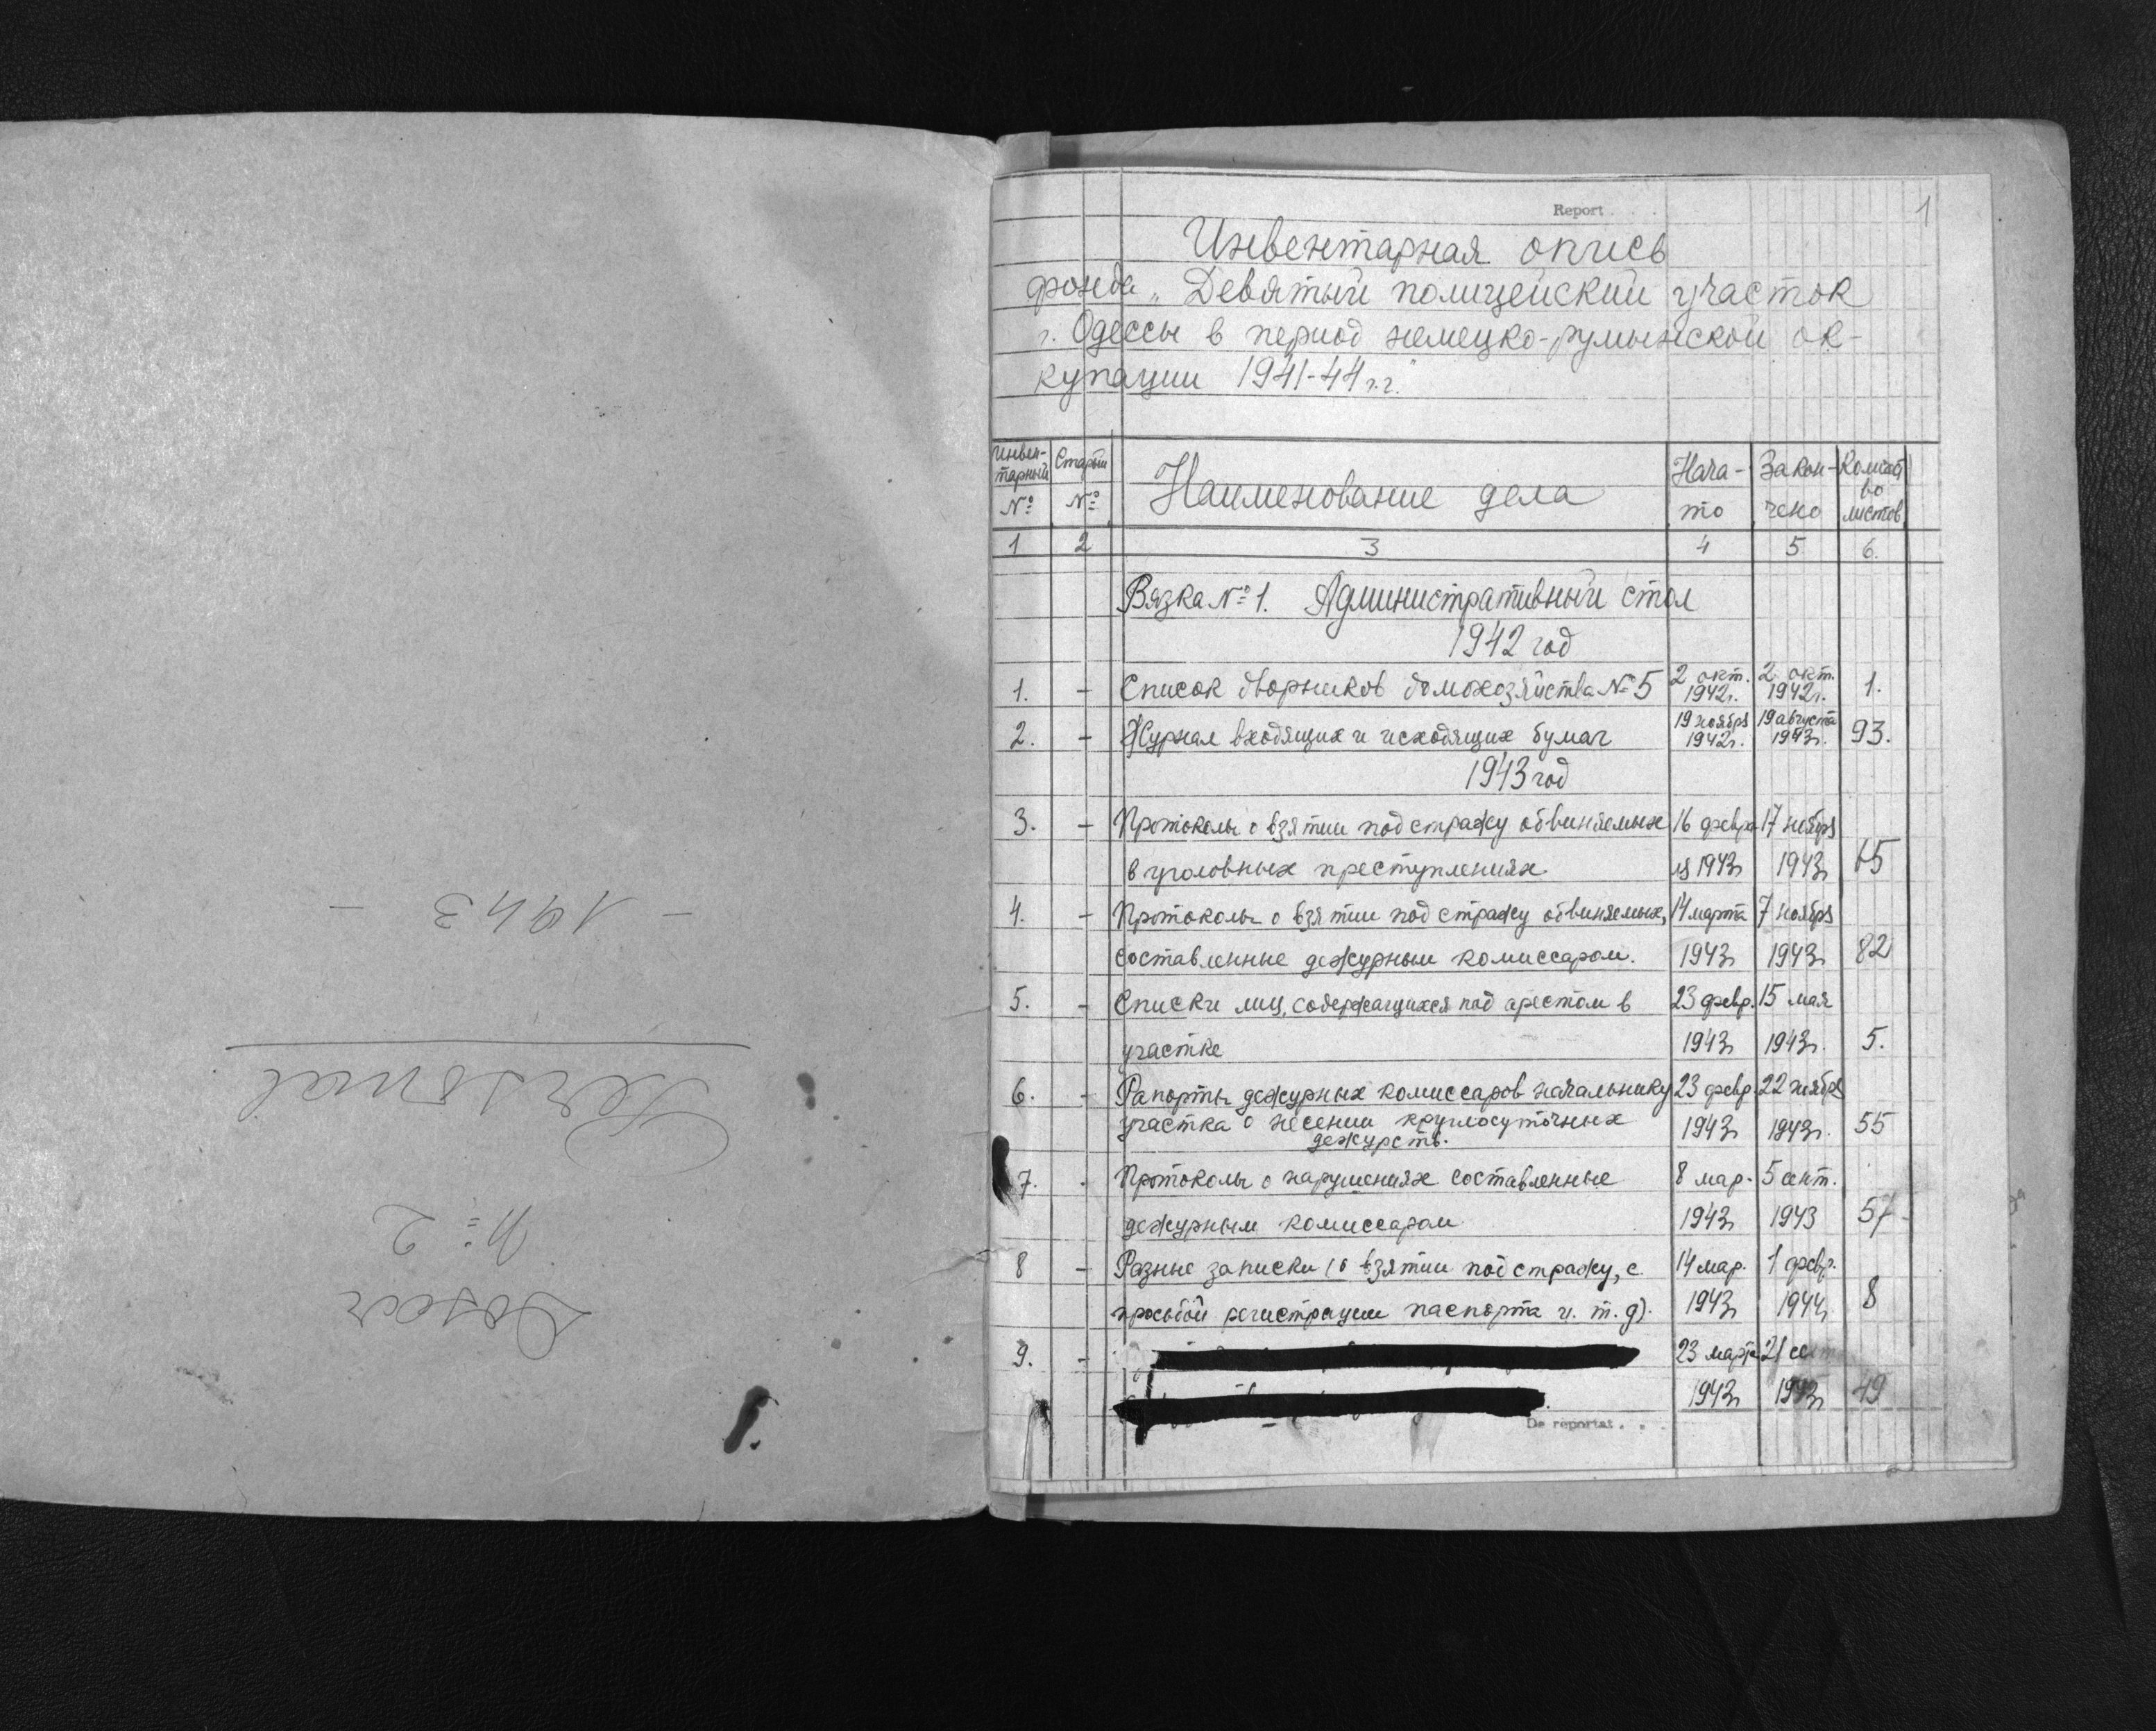 Dosar
№ 2
Personal
- 1943 -
Report
1
Инвентарная опись
фонда „Девятый полицейский участок
г. Одессы в период немецко-румынской ок-
купации 1941-44 г.г."
Инвен-
тарный
№
Старый
№
Наименование дела
Нача-
то
Закон-
чено
Колич
во
листов
1 2 3 4 5 6.
Вязка № 1. Административный стол
1942 год
1. - Список дворников домохозяйства № 5 2 окт. 1942г. 2 окт. 1942г. 1.
2. - Журнал входящих и исходящих бумаг 19 ноября 1942г. 19 августа 1943г. 93.
1943 год
3. - Протоколы о взятии под стражу обвиняемых 16 февра- 17 ноября
в уголовных преступлениях ля 1943г 1943г 65
4. - Протоколы о взятии под стражу обвиняемых, 14 марта 7 ноября
составленные дежурным комиссаром. 1943г 1943г 82
5. - Списки лиц, содержащихся под арестом в 23 февр. 15 мая
участке 1943г 1943г. 5.
6. - Рапорты дежурных комиссаров начальнику 23 февр. 22 ноября
участка о несении круглосуточных 1943г 1943г. 55
дежурств.
7. - Протоколы о нарушениях составленные 8 мар. 5 сент.
дежурным комиссаром 1943г 1943 57
8 - Разные записки (о взятии под стражу, с 14 мар. 1 февр.
просьбой регистрации паспорта и. т. д). 1943г 1944г. 8
9. - 23 марта 21 сент
1943г 1943г 49
De reportat . .